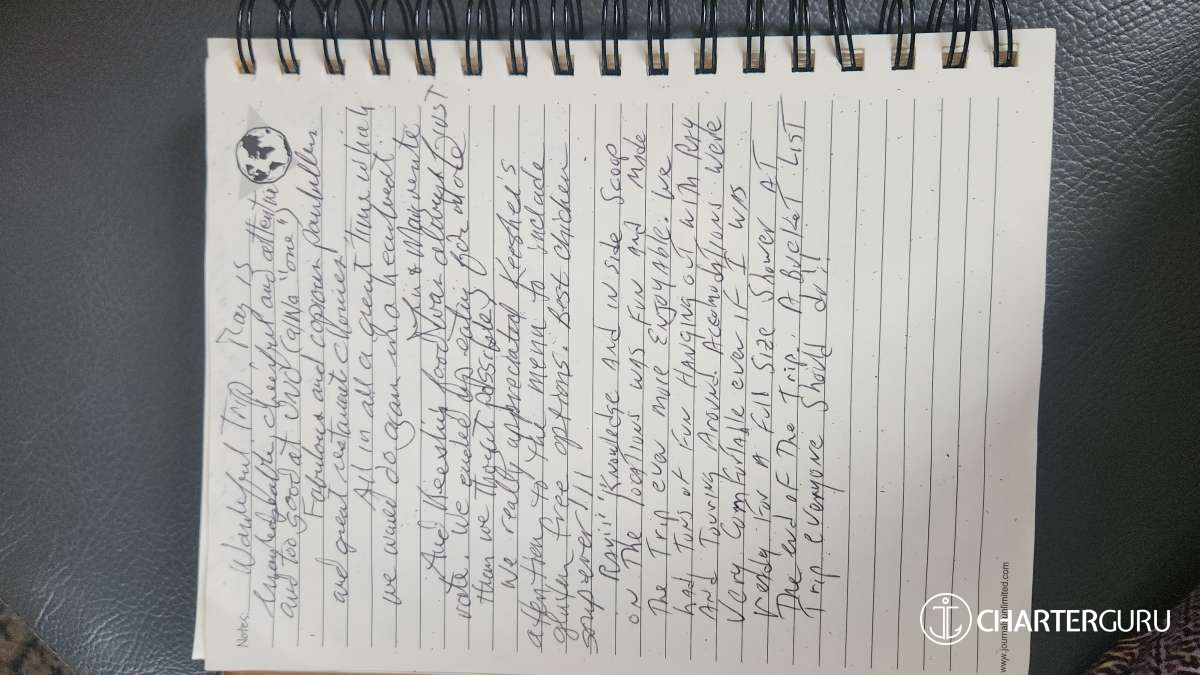 Notes:
Wonderful Trip! Ray is
knowledgable, cheerful and attentive
and too good at the game "one".
Fabulous and
and great restaurant choices!
All in all a great time which
we would do again in a heartbeat.
And food was always first
rate. We ended up eating far more
than we thought possible!
We really appreciated
attention to the menu to include
gluten free options. Best chicken
soup ever!!!
Knowledge and in side Scoop
on The locations was Fun and Made
The Trip even more Enjoyable. We
had Tons of Fun Hanging out with Ray
And Touring Around. Accomodations were
Very Comfortable even IF I was
ready For A Full Size Shower AT
The end of The Trip. A Bucket LIST
Trip everyone Should do!!
www.journalsunlimited.com
CHARTERGURU